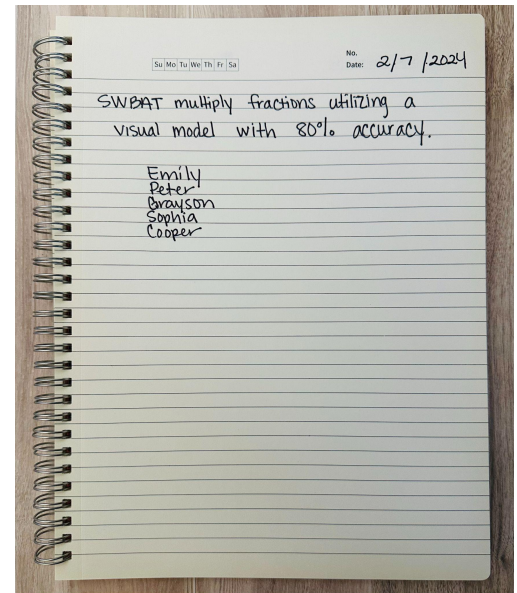 No.
Su Mo Tu We Th Fr Sa
Date: 2/7/2024
SWBAT multiply fractions utilizing a
visual model with 80% accuracy.
Emily
Peter
Grayson
Sophia
Cooper